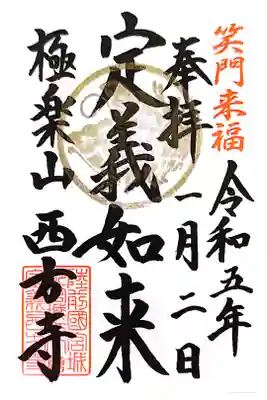 笑門来福
令和五年
一月二日
奉拝
定義如来
極楽山
西方寺